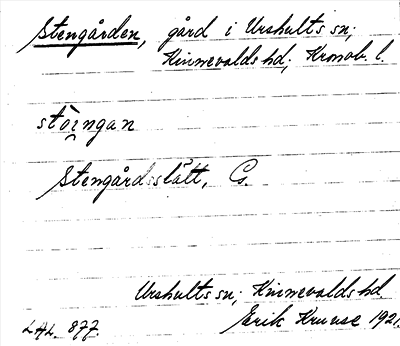 Stengården, gård i Urshults sn;
Kinnevalds hd; Kronob. l.
stòingan
Stengårdsslätt, G.
Urshults sn; Kinnevalds hd.
L.H.L. 877. Erik Kruuse 1921.